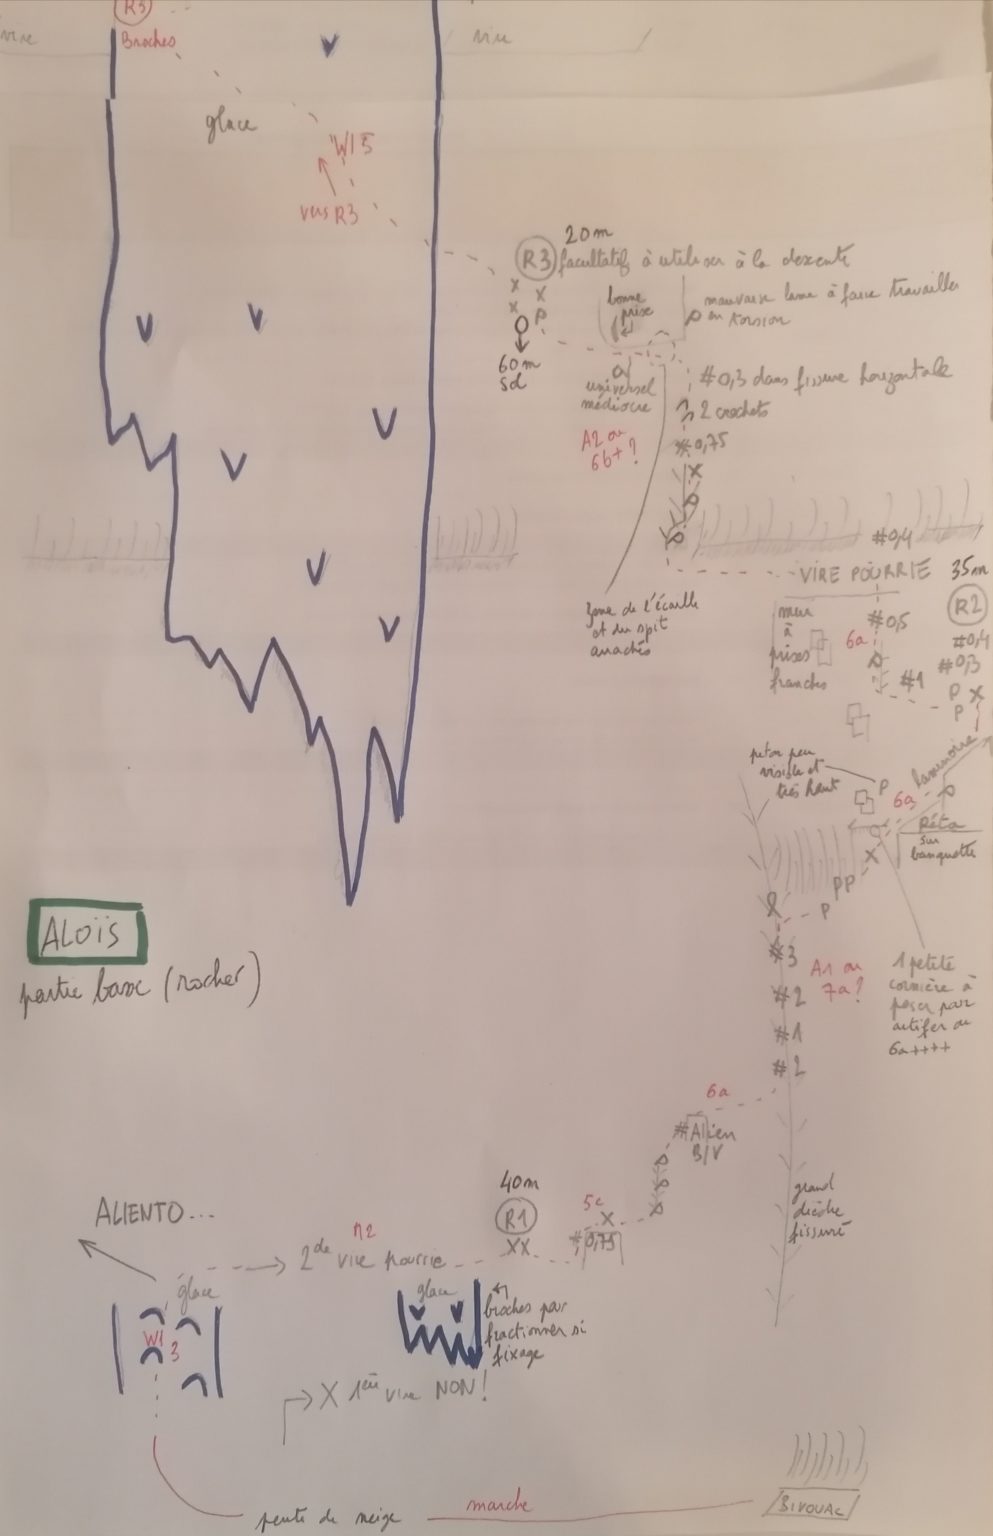 R3
Broches
vire
vire
glace
WI 5
vers R3
20m
R3 facultatif à utiliser à la descente
X X
X P
60m
sol
bonne
prise
mauvaise lame à faire travailler
en torsion
universel
médiocre
A2 ou
6b+?
#0,3 dans fissure horizontale
2 crochets
#0,75
X
#0,4
VIRE POURRIE 35m
R2
zone de l'écaille
et du spit
arrachés
mur
à
prises
franches
6a
#0,5
#0,4
#0,3
#1
P X
P
piton peu
visible et
très haut
P
laminoire
6a
Réta
sur
banquette
X
PP
P
ALOÏS
partie basse (rocher)
#3
#2
#1
#2
A1 ou
7a?
1 petite
cornière à
poser par
artifer ou
6a++++
6a
#Alien
B/V
grand
dièdre
fissuré
40m
R1
XX
5c
X
#0,75
ALIENTO...
M2
2de vire pourrie
glace
WI
3
glace
broches par
fractionner si
fixage
X 1ère vire NON!
pente de neige
marche
BIVOUAC